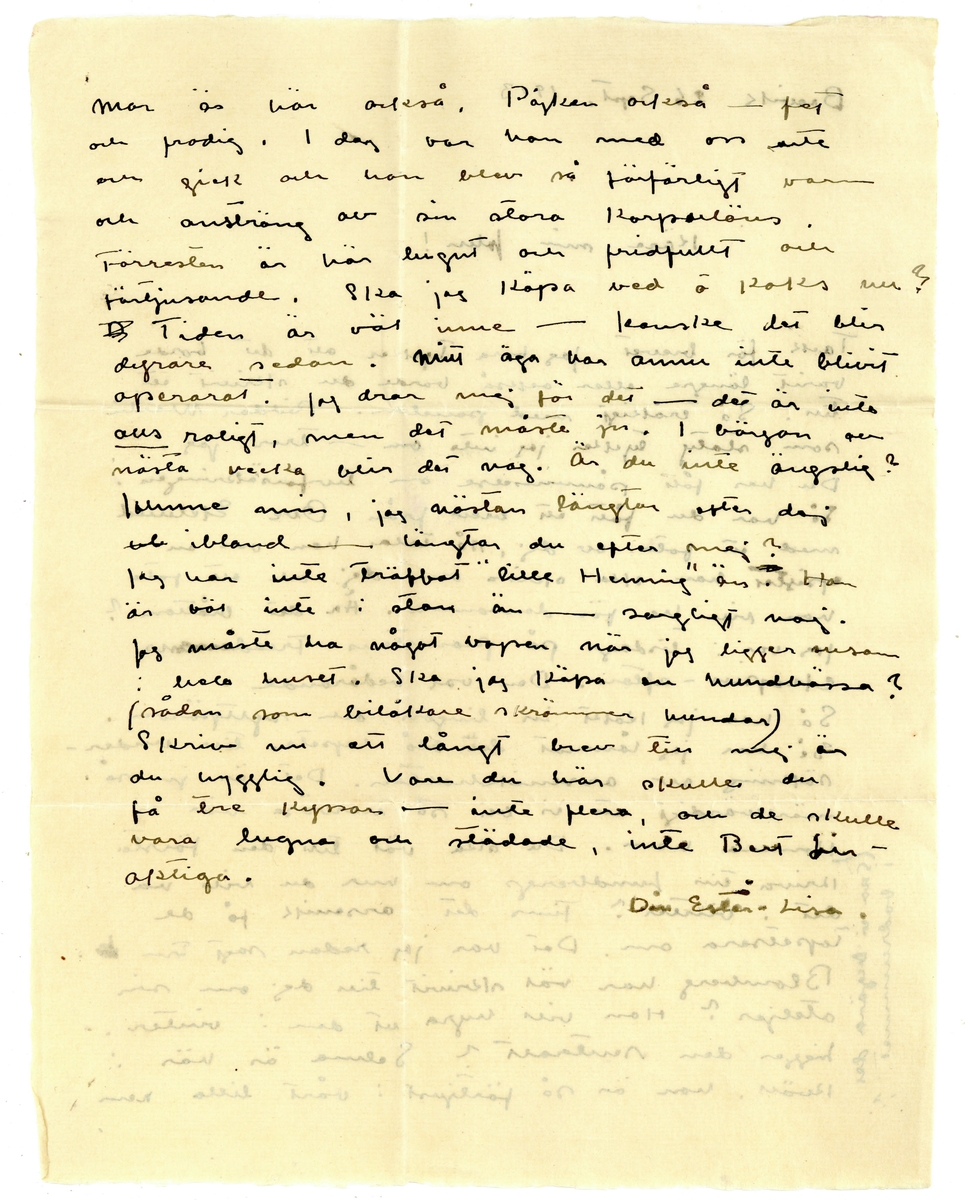 Mor är här också. Pojken också — fet
och frodig. I dag var han med oss ute
och gick och han blev så förfärligt varm
och ansträng av sin stora korpulens.
Förresten är här lugnt och fridfullt och
förtjusande. Ska jag köpa ved å koks nu?
Tiden är väl inne — kanske det blir
dyrare sedan. Mitt öga har ännu inte blivit
opererat. Jag drar mej för det — det är inte
alls roligt, men det måste ju. I början av
nästa vecka blir det nog. Är du inte ängslig?
min, jag nästan längtar efter dej
ibland — längtar du efter mej?
Jag har inte träffat "lille Henning" än. Han
är väl inte i stan än — sorgligt nog.
Jag måste ha något vapen när jag ligger ensam
i hela huset. Ska jag köpa en hundbössa?
(sådan som bilåkare skrämmer hundar)
Skriv nu ett långt brev till mej är
du hygglig. Vore du här skulle du
få tre kyssar — inte flera, och de skulle
vara lugna och städade, inte Bert Lin-
aktiga.
Din Ester-Lisa.